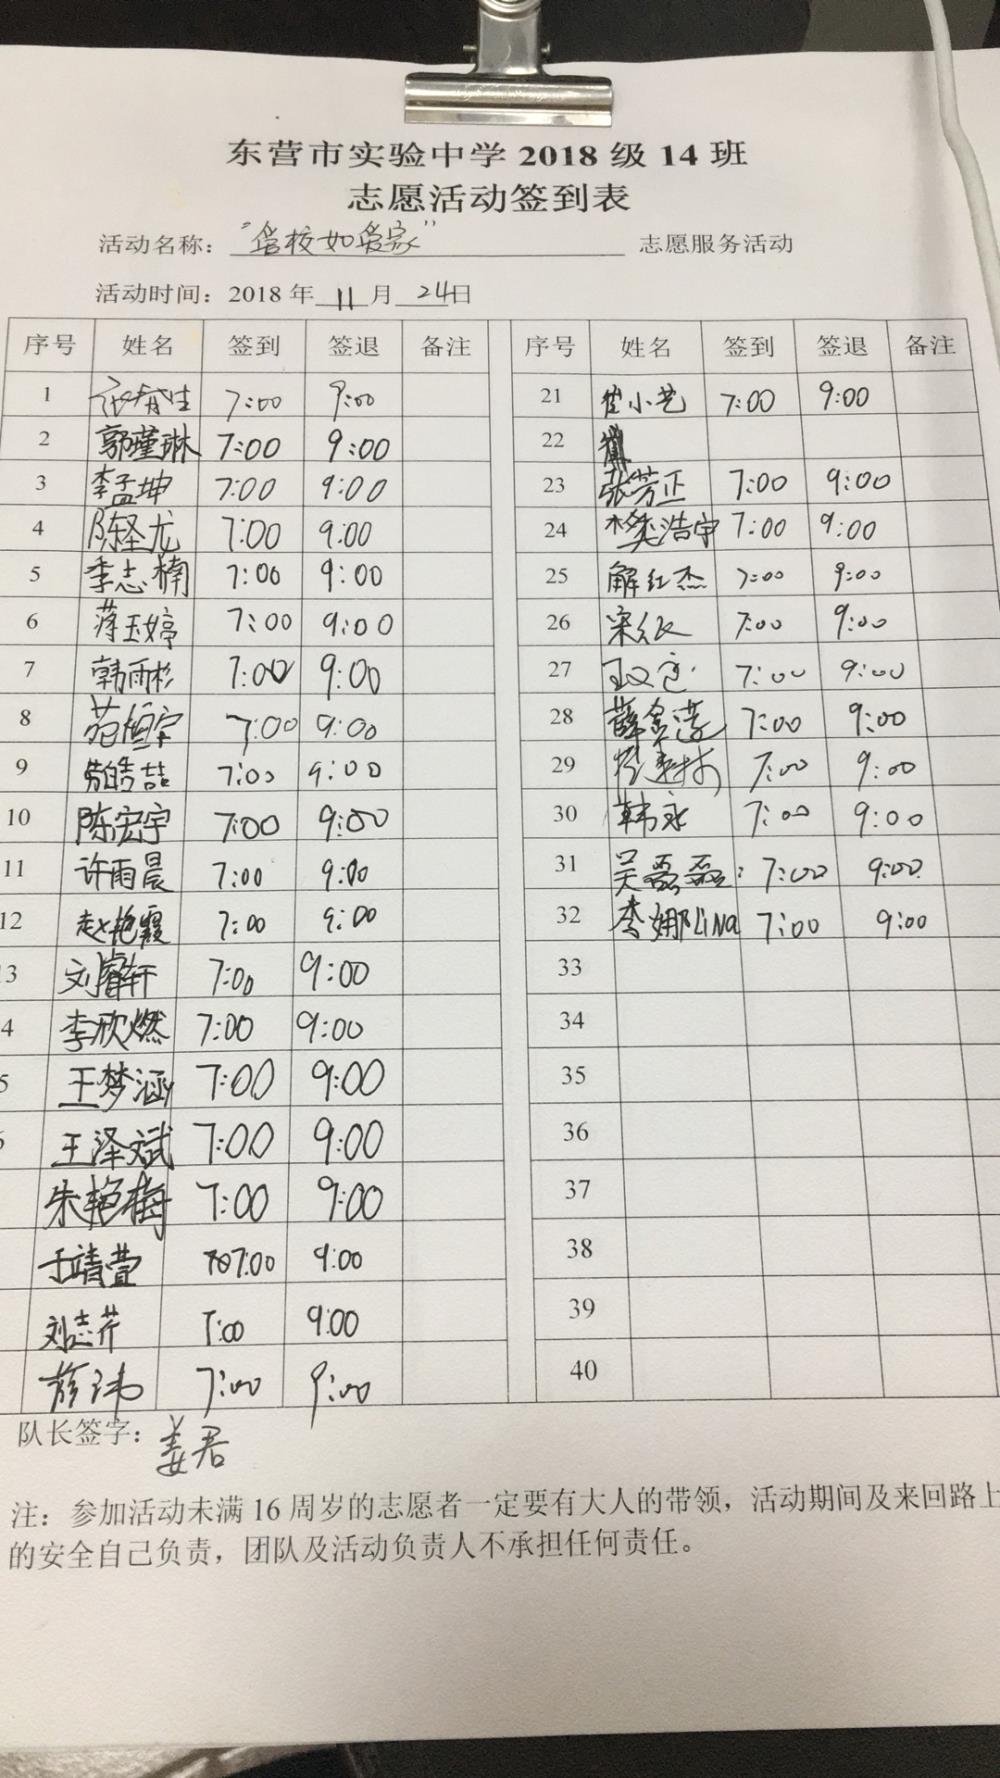 东营市实验中学 2018 级 14 班
志愿活动签到表
活动名称： “爱校如爱家” 志愿服务活动
活动时间：2018 年 11 月 24日
序号 姓名 签到 签退 备注 序号 姓名 签到 签退 备注
1 7:00 9:00 21 崔小艺 7:00 9:00
2 郭瑾琳 7:00 9:00 22
3 李孟坤 7:00 9:00 23 张芳正 7:00 9:00
4 陈圣龙 7:00 9:00 24 樊浩宇 7:00 9:00
5 季志楠 7:00 9:00 25 解红杰 7:00 9:00
6 蒋玉婷 7:00 9:00 26 7:00 9:00
7 韩雨杉 7:00 9:00 27 7:00 9:00
8 范恒宇 7:00 9:00 28 薛金莲 7:00 9:00
9 皓喆 7:00 9:00 29 7:00 9:00
10 陈宏宇 7:00 9:00 30 韩永 7:00 9:00
11 许雨晨 7:00 9:00 31 吴磊磊 7:00 9:00
12 赵艳霞 7:00 9:00 32 李娜 LiNa 7:00 9:00
3 刘睿轩 7:00 9:00 33
4 李欣燃 7:00 9:00 34
5 王梦涵 7:00 9:00 35
王泽斌 7:00 9:00 36
朱艳梅 7:00 9:00 37
于靖萱 7:00 9:00 38
刘志芹 7:00 9:00 39
薛玮 7:00 9:00 40
队长签字：姜君
注：参加活动未满 16 周岁的志愿者一定要有大人的带领，活动期间及来回路上
的安全自己负责，团队及活动负责人不承担任何责任。